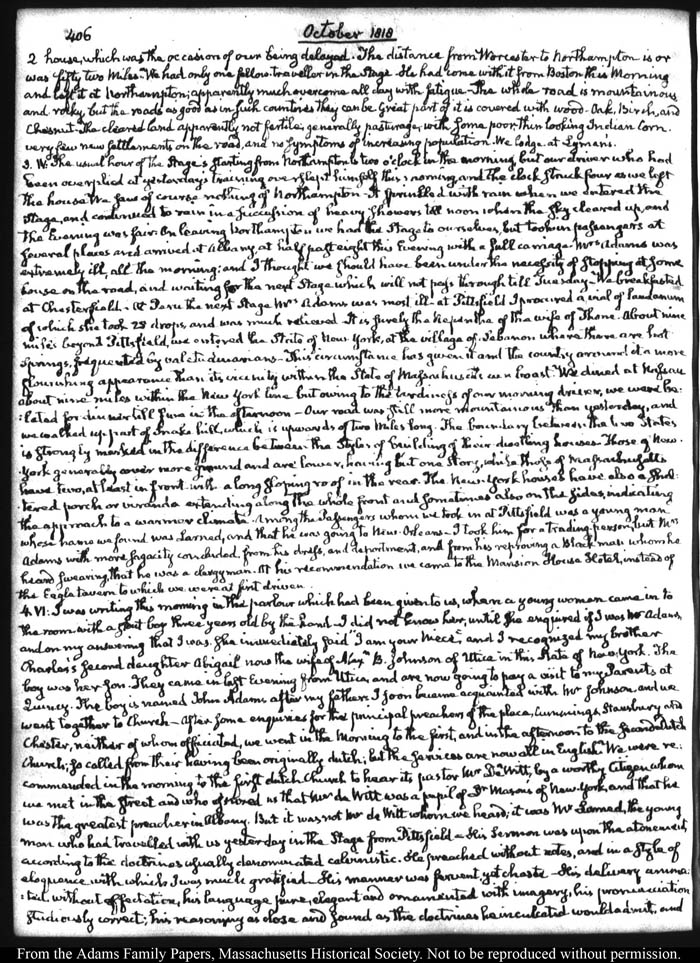 406
October 1818
2 house, which was the occasion of our being delayed. The distance from Worcester to Northampton is or
was fifty two Miles. We had only one fellow-traveller in the Stage. He had come with it from Boston this Morning
and left it at Northampton; apparently much overcome all day with fatigue. The whole road is mountainous
and rocky, but the roads as good as in such countries they can be. Great part of it is covered with wood. Oak, Birch, and
Chesnut. The cleared land apparently not fertile; generally pasturage, with some poor thin looking Indian Corn.
very few new settlements on the road, and no symptoms of increasing population. We lodge at Lymans.
3. IV: The usual hour of the Stage's starting from Northampton is two o'clock in the morning, but our driver who had
been overplied at yesterday's training overslept himself this morning, and the clock struck four as we left
the house. We saw of course nothing of Northampton. It sprinkled with rain when we entered the
Stage, and continued to rain in a succession of heavy showers till noon when the sky cleared up, and
the Evening was fair. On leaving Northampton we had the Stage to ourselves, but took in passengers at
several places and arrived at Albany, at half past eight this Evening with a full carriage. Mrs Adams was
extremely ill, all the morning; and I thought we should have been under the necessity of stopping at some
house on the road, and waiting for the next Stage which will not pass through till Tuesday. We breakfasted
at Chesterfield. At Peru the next Stage Mrs Adams was most ill. at Pittsfield I procured a vial of laudanum
of which she took 28 drops, and was much relieved. It is surely the Nepenthe of the wife of Thone. About nine
miles beyond Pittsfield, we entered the State of New York, at the village of Lebanon where there are hot
springs, frequented by valetudinarians. This circumstance has given it and the country around it a more
flourishing appearance than its vicinity within the State of Massachusetts can boast. We dined at Nassau
about nine miles within the New York line but owing to the tardiness of our morning driver, we were be-
:lated for dinner till five in the afternoon — Our road was still more mountainous than yesterday, and
we walked up part of Snake hill, which is upwards of two Miles long. The boundary between the two States
is strongly marked in the difference between the Styles of building of their dwelling houses. Those of New-
York generally cover more ground and are lower, having but one story, while those of Massachusetts
have two, at least in front with a long sloping roof in the rear. The New-York houses have also a shel:
tered porch or veranda extending along the whole front and sometimes also on the sides, indicating
the approach to a warmer climate. Among the Passengers whom we took in at Pittsfield was a young man
whose name we found was Larned, and that he was going to New-Orleans. I took him for a trading person, but Mrs
Adams with more sagacity concluded from his dress, and deportment, and from his reproving a Black man whom he
heard swearing, that he was a clergyman. At his recommendation we came to the Mansion House Hotel, instead of
the Eagle tavern to which we were at first driven.
4. VI: I was writing this morning in the parlour which had been given to us, when a young woman came in to
the room with a boy three years old by the hand. I did not know her, until she enquired if I was Mr Adams,
and on my answering that I was. She immediately said "I am your Niece," and I recognized my brother
Charles's second daughter Abigail now the wife of Alexr B. Johnson of Utica in this State of New York. The
boy was her son. They came in last Evening from Utica, and are now going to pay a visit to my Parents at
Quincy. The boy is named John Adams after my father. I soon became acquainted with Mr Johnson, and we
went together to Church — After some enquiries for the principal preachers of the place, Cummings, Stansbury and
Chester, neither of whom officiated, we went in the Morning to the first, and in the afternoon to the Second Dutch
Church; so called from their having been originally dutch; but the services are now all in English. We were re:
commended in the morning to the first dutch Church to hear its pastor Mr De Witt, by a worthy Citizen whom
we met in the street and who assured us that Mr de Witt was a pupil of Dr Mason's of New York, and that he
was the greatest preacher in Albany. But it was not Mr de Witt whom we heard; it was Mr Larned, the young
man who had travelled with us yesterday in the Stage from Pittsfield — His Sermon was upon the atonement,
according to the doctrines usually denominated calvinistic. He preached without notes, and in a style of
eloquence with which I was much gratified. His manner was fervent, yet chaste — His delivery anima:
:ted, without affectation, his language pure, elegant and ornamented with imagery, his pronunciation
studiously correct; his reasoning as close and sound as the doctrines he inculcated would admit, and
From the Adams Family Papers, Massachusetts Historical Society. Not to be reproduced without permission.